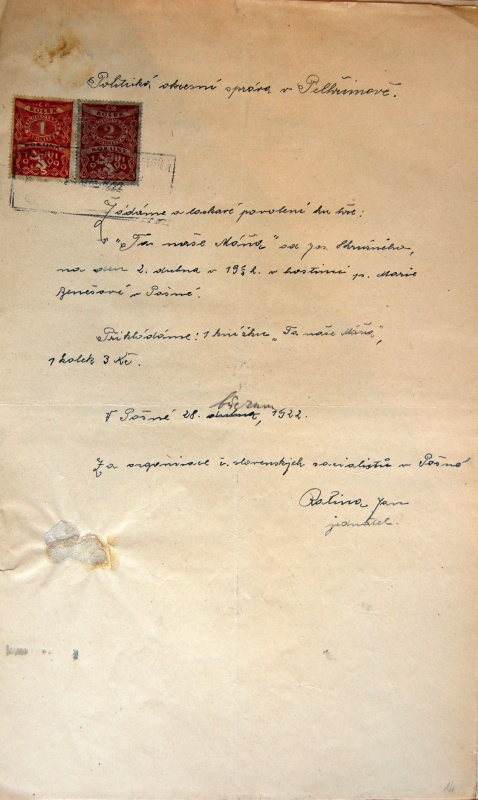 Politická okresní správa v Pelhřimově.
KOLEK
1
KORUNA
1919
KOLEK
2
KORUNY
1919
Žádáme o laskavé povolení ku hře:
"Ta naše Máňa" od Jos. Skružného,
na den 2. dubna v h. v hostinci p. Marie
Benešové v Pošné.
Přikládáme: 1 knížku "Ta naše Máňa",
1 kolek 3 Kč.
března
V Pošné 28. dubna, 1922.
Za organisaci č. slovenských socialistů v Pošné
Jan
jednatel.